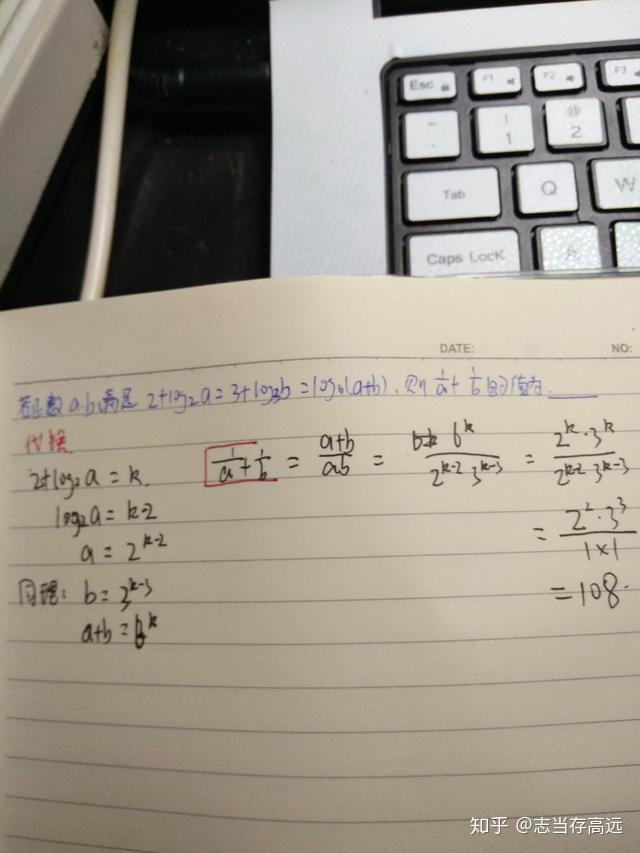 Esc F1 F2 F3
~ ! 1 @ 2
Tab Q W
Caps LocK A
DATE: NO:
若正数a.b满足 2+log₂a=3+log₃b=log₆(a+b),则 1/a + 1/b 的值为____
代换
2+log₂a=k.
log₂a=k-2
a=2^(k-2)
同理: b=3^(k-3)
a+b=6^k
1/a + 1/b = (a+b)/(ab) = 6^k/(2^(k-2) 3^(k-3)) = (2^k·3^k)/(2^(k-2) 3^(k-3))
= (2²·3³)/(1×1)
=108.
知乎 @志当存高远